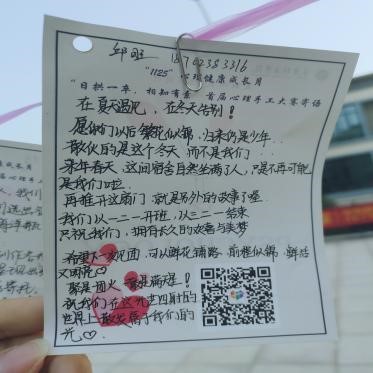 邱旺 18702383316
"1125" 心理健康成长月
"日拱一卒,相知有素" 首届心理手工大赛寄语
在夏天遇见,在冬天告别!
愿你们以后繁花似锦,归来仍是少年..
散伙的是这个冬天,而不是我们....
来年春天,这间宿舍自然坐满了人,只是不再可能
是我们啦.
再推开这扇门,就是另外的故事了喔.
我们从一二一开班,从三二一结束
只祝我们,拥有长久的欢喜与美梦
希望下一次见面,可以鲜花铺路,前程似锦,鲜活
又明亮♡.
聚是团火,散是满天星!
祝我们在这光芒四射的
世界上散发属于我们的
光♡.